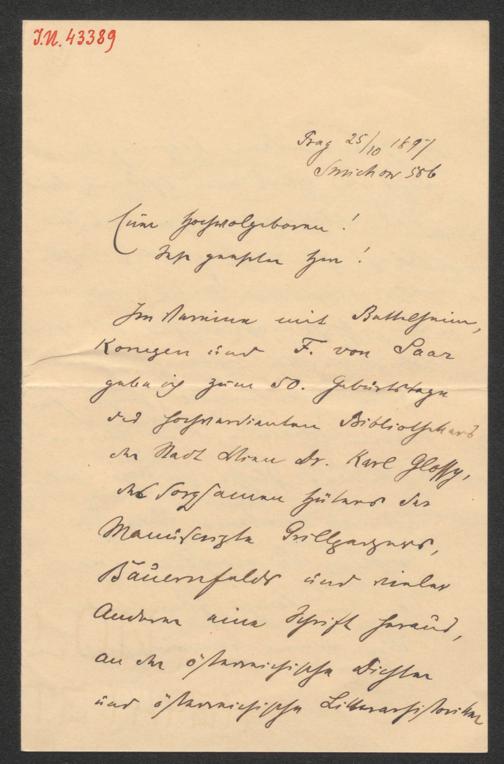 J.N. 43389
Prag 25/10 1897
Smichow 586
Euer Hochwolgeboren!
Sehr geehrter Herr!
Im Vereine mit Bettelheim,
Konegen und F. von Saar
gebe ich zum 50. Geburtstage
des hochverdienten Bibliothekars
der Stadt Wien Dr. Karl Glossy,
des sorgsamen Hüters der
Manuscripte Grillparzers,
Bauernfelds und vieler
Anderer eine Schrift heraus,
an der österreichische Dichter
und österreichische Litterarhistoriker